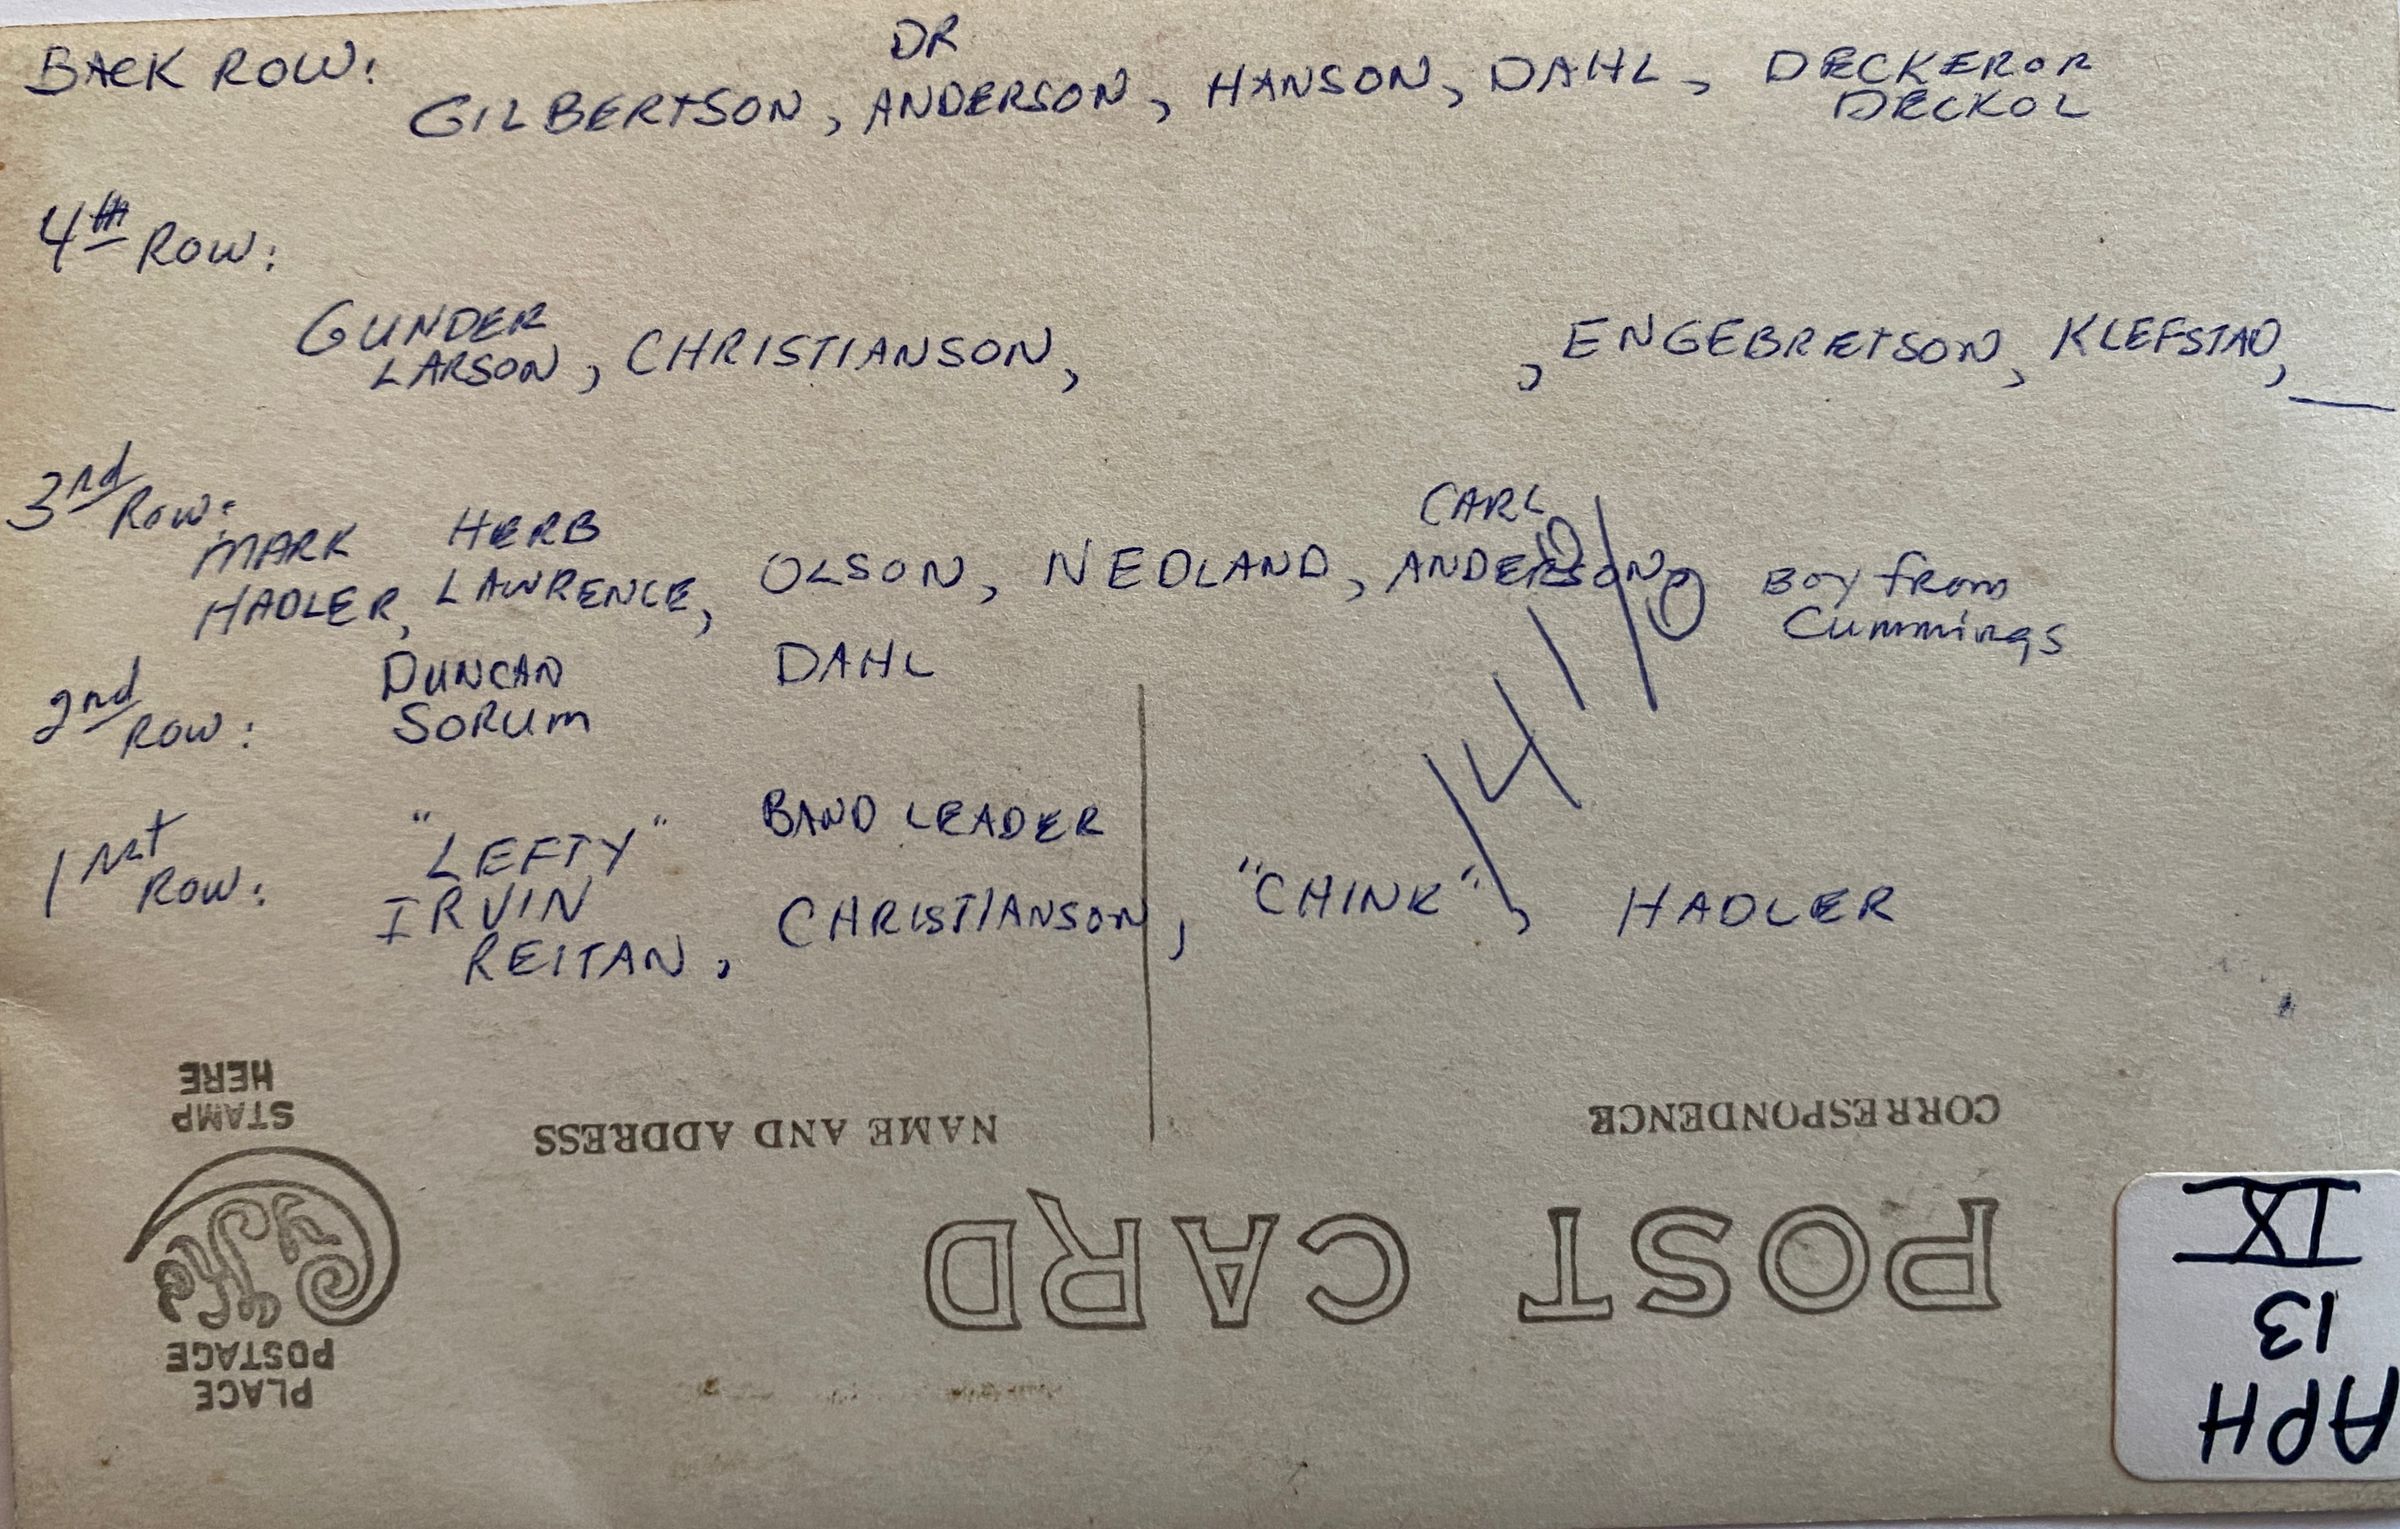 BACK ROW:
DR
GILBERTSON, ANDERSON, HANSON, DAHL, DECKER OR
DECKOL
4th ROW:
GUNDER
LARSON, CHRISTIANSON, , ENGEBRETSON, KLEFSTAD, __
3rd ROW:
MARK HERB CARL
HADLER, LAWRENCE, OLSON, NEDLAND, ANDERSON, BOY from
Cummings
2nd ROW:
DUNCAN DAHL
SORUM
1rst ROW:
"LEFTY" BAND LEADER
IRVIN CHRISTIANSON, "CHINK", HADLER
REITAN,
POST CARD
CORRESPONDENCE
NAME AND ADDRESS
PLACE
POSTAGE
STAMP
HERE
APH
13
IX